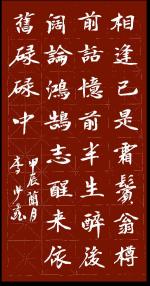 相逢已是霜鬢翁樽
前話憶前半生醉後
闊論鴻鵠志醒來依
舊碌碌中
甲辰蘭月